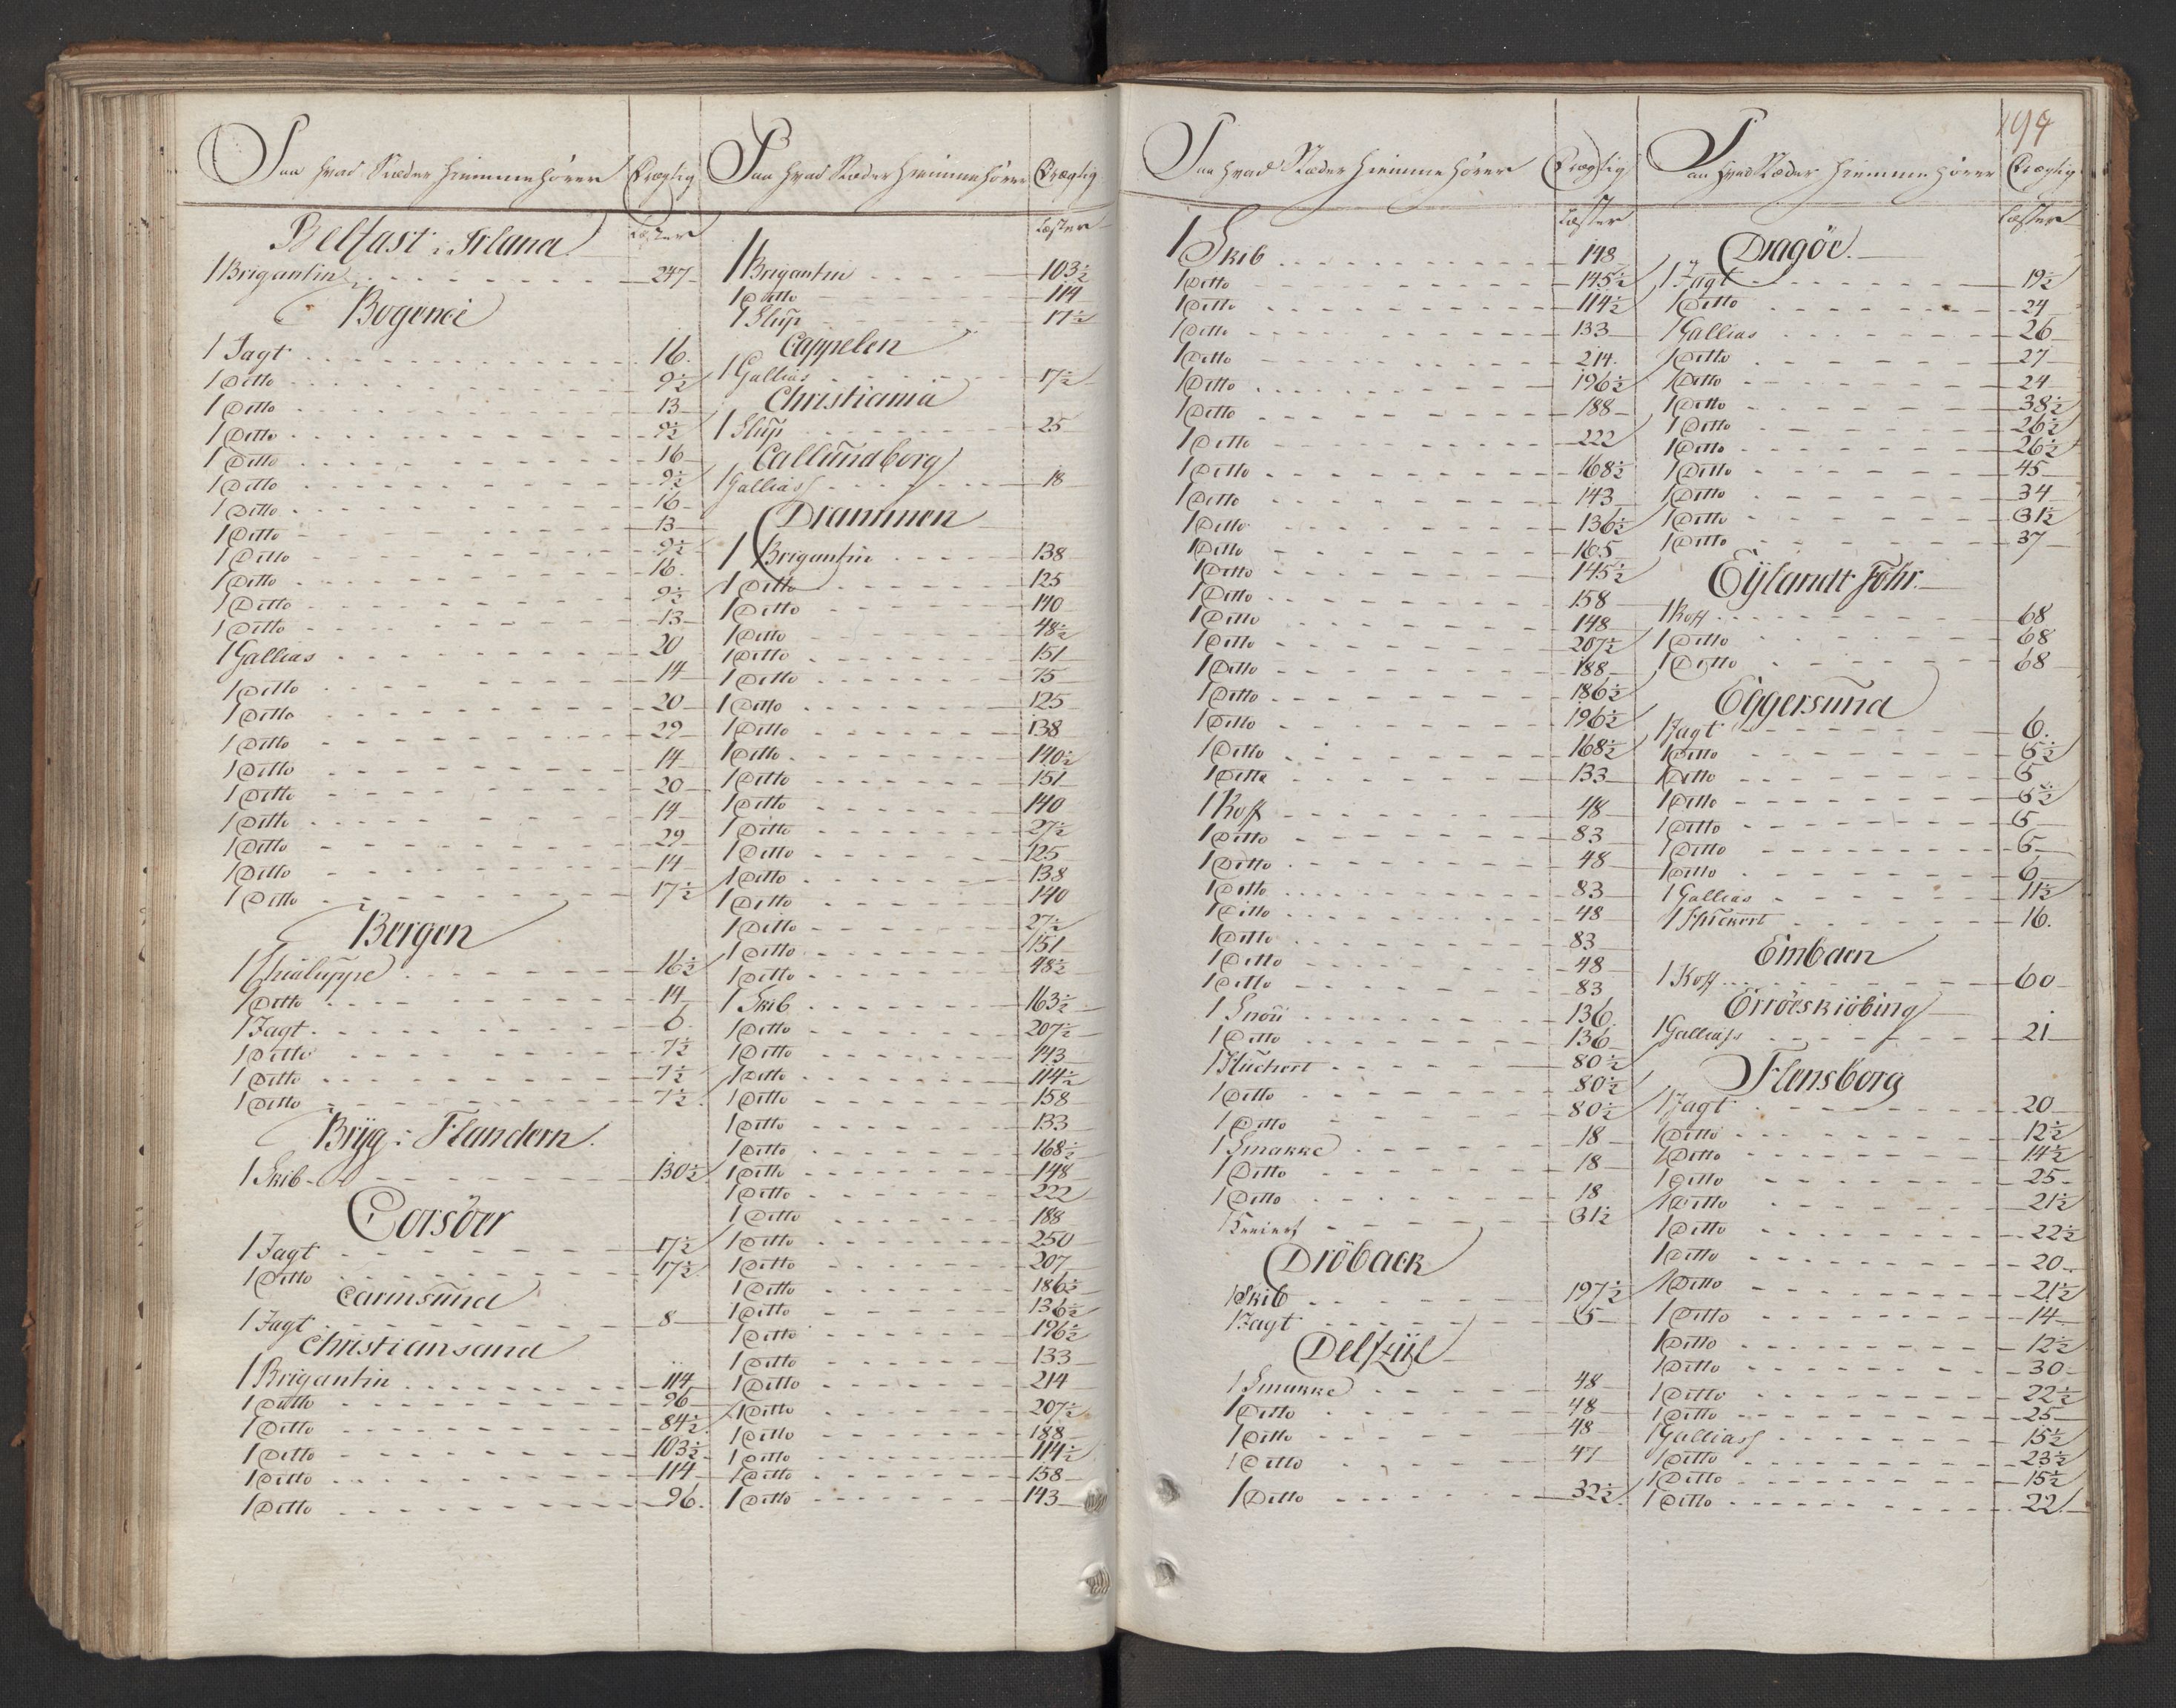 Paa hvad Stæder hiemmehører Drægtig
Læster
Belfast i Irland
1 Brigantin 247
Bogense
1 Jagt 16.
1 Ditto 9½
1 Ditto 13
1 Ditto 9½
1 Ditto 16
1 Ditto 9½
1 Ditto 16
1 Ditto 13
1 Ditto 9½
1 Ditto 16.
1 Ditto 9½
1 Ditto 13
1 Gallias 20
1 Ditto 14
1 Ditto 20
1 Ditto 29
1 Ditto 14
1 Ditto 20
1 Ditto 14
1 Ditto 29
1 Ditto 14
1 Ditto 17½
Bergen
1 Chialuppe 16½
1 Ditto 14
1 Jagt 6.
1 Ditto 7½
1 Ditto 7½
1 Ditto 7½
Bryg i Flandern.
1 Skib 130½
Corsöer
1 Jagt 17½
1 Ditto 17½
Carmsund
1 Jagt 8
Christiansand
1 Brigantin 114
1 Ditto 96
1 Ditto 84½
1 Ditto 103½
1 Ditto 114
1 Ditto 96.
Paa hvad Stæder hiemmehører Drægtig
Læster
1 Brigantin 103½
1 Ditto 114
1 Slup 17½
Cappelen
1 Gallias 17½
Christiania
1 Slup 25
Callundborg
1 Galliass 18
Drammen
1 Brigantin 138
1 Ditto 125
1 Ditto 140
1 Ditto 48½
1 Ditto 151
1 Ditto 75
1 Ditto 125
1 Ditto 138
1 Ditto 140½
1 Ditto 151
1 Ditto 140
1 Ditto 27½
1 Ditto 125
1 Ditto 138
1 Ditto 140
1 Ditto 27½
1 Ditto 151
1 Ditto 48½
1 Skib 163½
1 Ditto 207½
1 Ditto 143
1 Ditto 114½
1 Ditto 158
1 Ditto 133
1 Ditto 168½
1 Ditto 148
1 Ditto 222
1 Ditto 188
1 Ditto 250
1 Ditto 207
1 Ditto 186½
1 Ditto 136½
1 Ditto 196½
1 Ditto 133
1 Ditto 214
1 Ditto 207½
1 Ditto 188
1 Ditto 114½
1 Ditto 158
1 Ditto 143
Paa hvad Stæder hiemmehører Drægtig
Læster
1 Skib 148
1 Ditto 145½
1 Ditto 114½
1 Ditto 133
1 Ditto 214.
1 Ditto 196½
1 Ditto 188
1 Ditto 222
1 Ditto 168½
1 Ditto 143
1 Ditto 136½
1 Ditto 165
1 Ditto 145½
1 Ditto 158
1 Ditto 148
1 Ditto 207½
1 Ditto 188
1 Ditto 186½
1 Ditto 196½
1 Ditto 168½
1 Ditto 133
1 Koff 48
1 Ditto 83
1 Ditto 48
1 Ditto 83
1 Ditto 48
1 Ditto 83
1 Ditto 48
1 Ditto 83
1 Snou 136
1 Ditto 136
1 Huckert 80½
1 Ditto 80½
1 Ditto 80½
1 Smakke 18
1 Ditto 18
1 Ditto 18
1 Kreiert 31½
Dröback
1 Skib 197½
1 Jagt 5
Delfziil
1 Smakke 48
1 Ditto 48
1 Ditto 48
1 Ditto 47
1 Ditto 32½
194
Paa hvad Stæder hiemmehører Drægtig
Læster
Dragöe.
1 Jagt 19½
1 Ditto 24
1 Gallias 26
1 Ditto 27
1 Ditto 24
1 Ditto 38½
1 Ditto 26½
1 Ditto 26½
1 Ditto 45
1 Ditto 34
1 Ditto 31½
1 Ditto 37
Eylandt Föhr.
1 Koff 68
1 Ditto 68
1 Ditto 68
Eggersund
1 Jagt 6.
1 Ditto 5½
1 Ditto 5
1 Ditto 5½
1 Ditto 5
1 Ditto 6
1 Ditto 6
1 Gallias 11½
1 Huckert 16.
Embden
1 Koff 60
Erröeskiöbing
1 Galliass 21
Flensborg
1 Jagt 20
1 Ditto 12½
1 Ditto 14½
1 Ditto 25
1 Ditto 21½
1 Ditto 22½
1 Ditto 20
1 Ditto 21½
1 Ditto 14
1 Ditto 12½
1 Ditto 30
1 Ditto 22½
1 Ditto 25
1 Galliass 15½
1 Ditto 23½
1 Ditto 15½
1 Ditto 22.